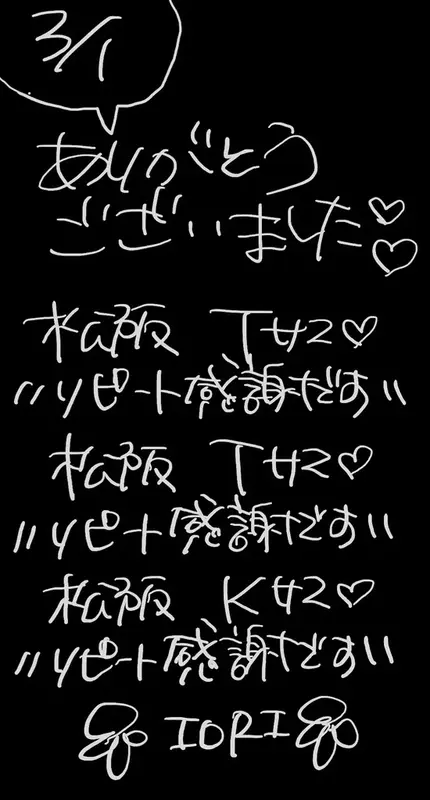 3/1
ありがとう
ございました♡♡
松阪 Tサマ♡
〃リピート感謝だす〃
松阪 Tサマ♡
〃リピート感謝だす〃
松阪 Kサマ♡
〃リピート感謝だす〃
IORI